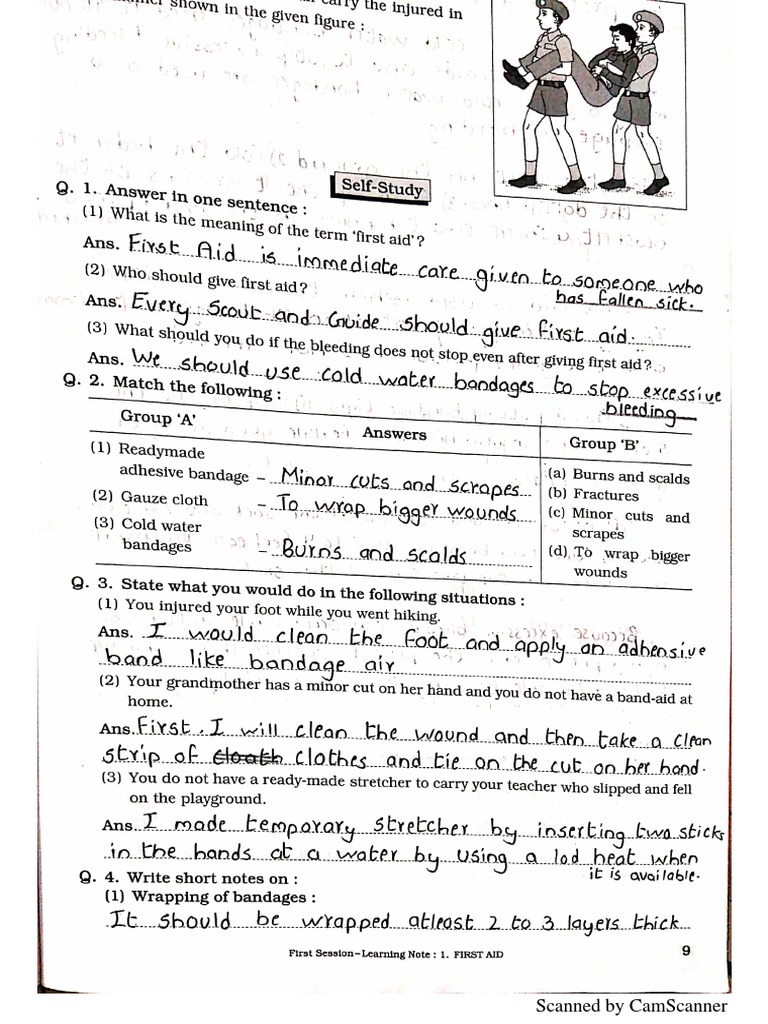 carry the injured in
shown in the given figure :
Self-Study
Q. 1. Answer in one sentence :
(1) What is the meaning of the term 'first aid'?
Ans. First Aid is immediate care given to someone who
has fallen sick.
(2) Who should give first aid?
Ans. Every Scout and Guide should give first aid.
(3) What should you do if the bleeding does not stop even after giving first aid?
Ans. We should use cold water bandages to stop excessive
bleeding
Q. 2. Match the following :
Group 'A' Answers Group 'B'
(1) Readymade
adhesive bandage – Minor cuts and scrapes
(2) Gauze cloth – To wrap bigger wounds
(3) Cold water
bandages – Burns and scalds
(a) Burns and scalds
(b) Fractures
(c) Minor cuts and
scrapes
(d) To wrap bigger
wounds
Q. 3. State what you would do in the following situations :
(1) You injured your foot while you went hiking.
Ans. I would clean the foot and apply an adhensive
band like bandage air
(2) Your grandmother has a minor cut on her hand and you do not have a band-aid at
home.
Ans. First, I will clean the wound and then take a clean
strip of clothes and tie on the cut on her hand.
(3) You do not have a ready-made stretcher to carry your teacher who slipped and fell
on the playground.
Ans. I made temporary stretcher by inserting two sticks
in the hands at a water by using a lad heat when
it is available.
Q. 4. Write short notes on :
(1) Wrapping of bandages :
It should be wrapped atleast 2 to 3 layers thick
First Session–Learning Note : 1. FIRST AID
9
Scanned by CamScanner